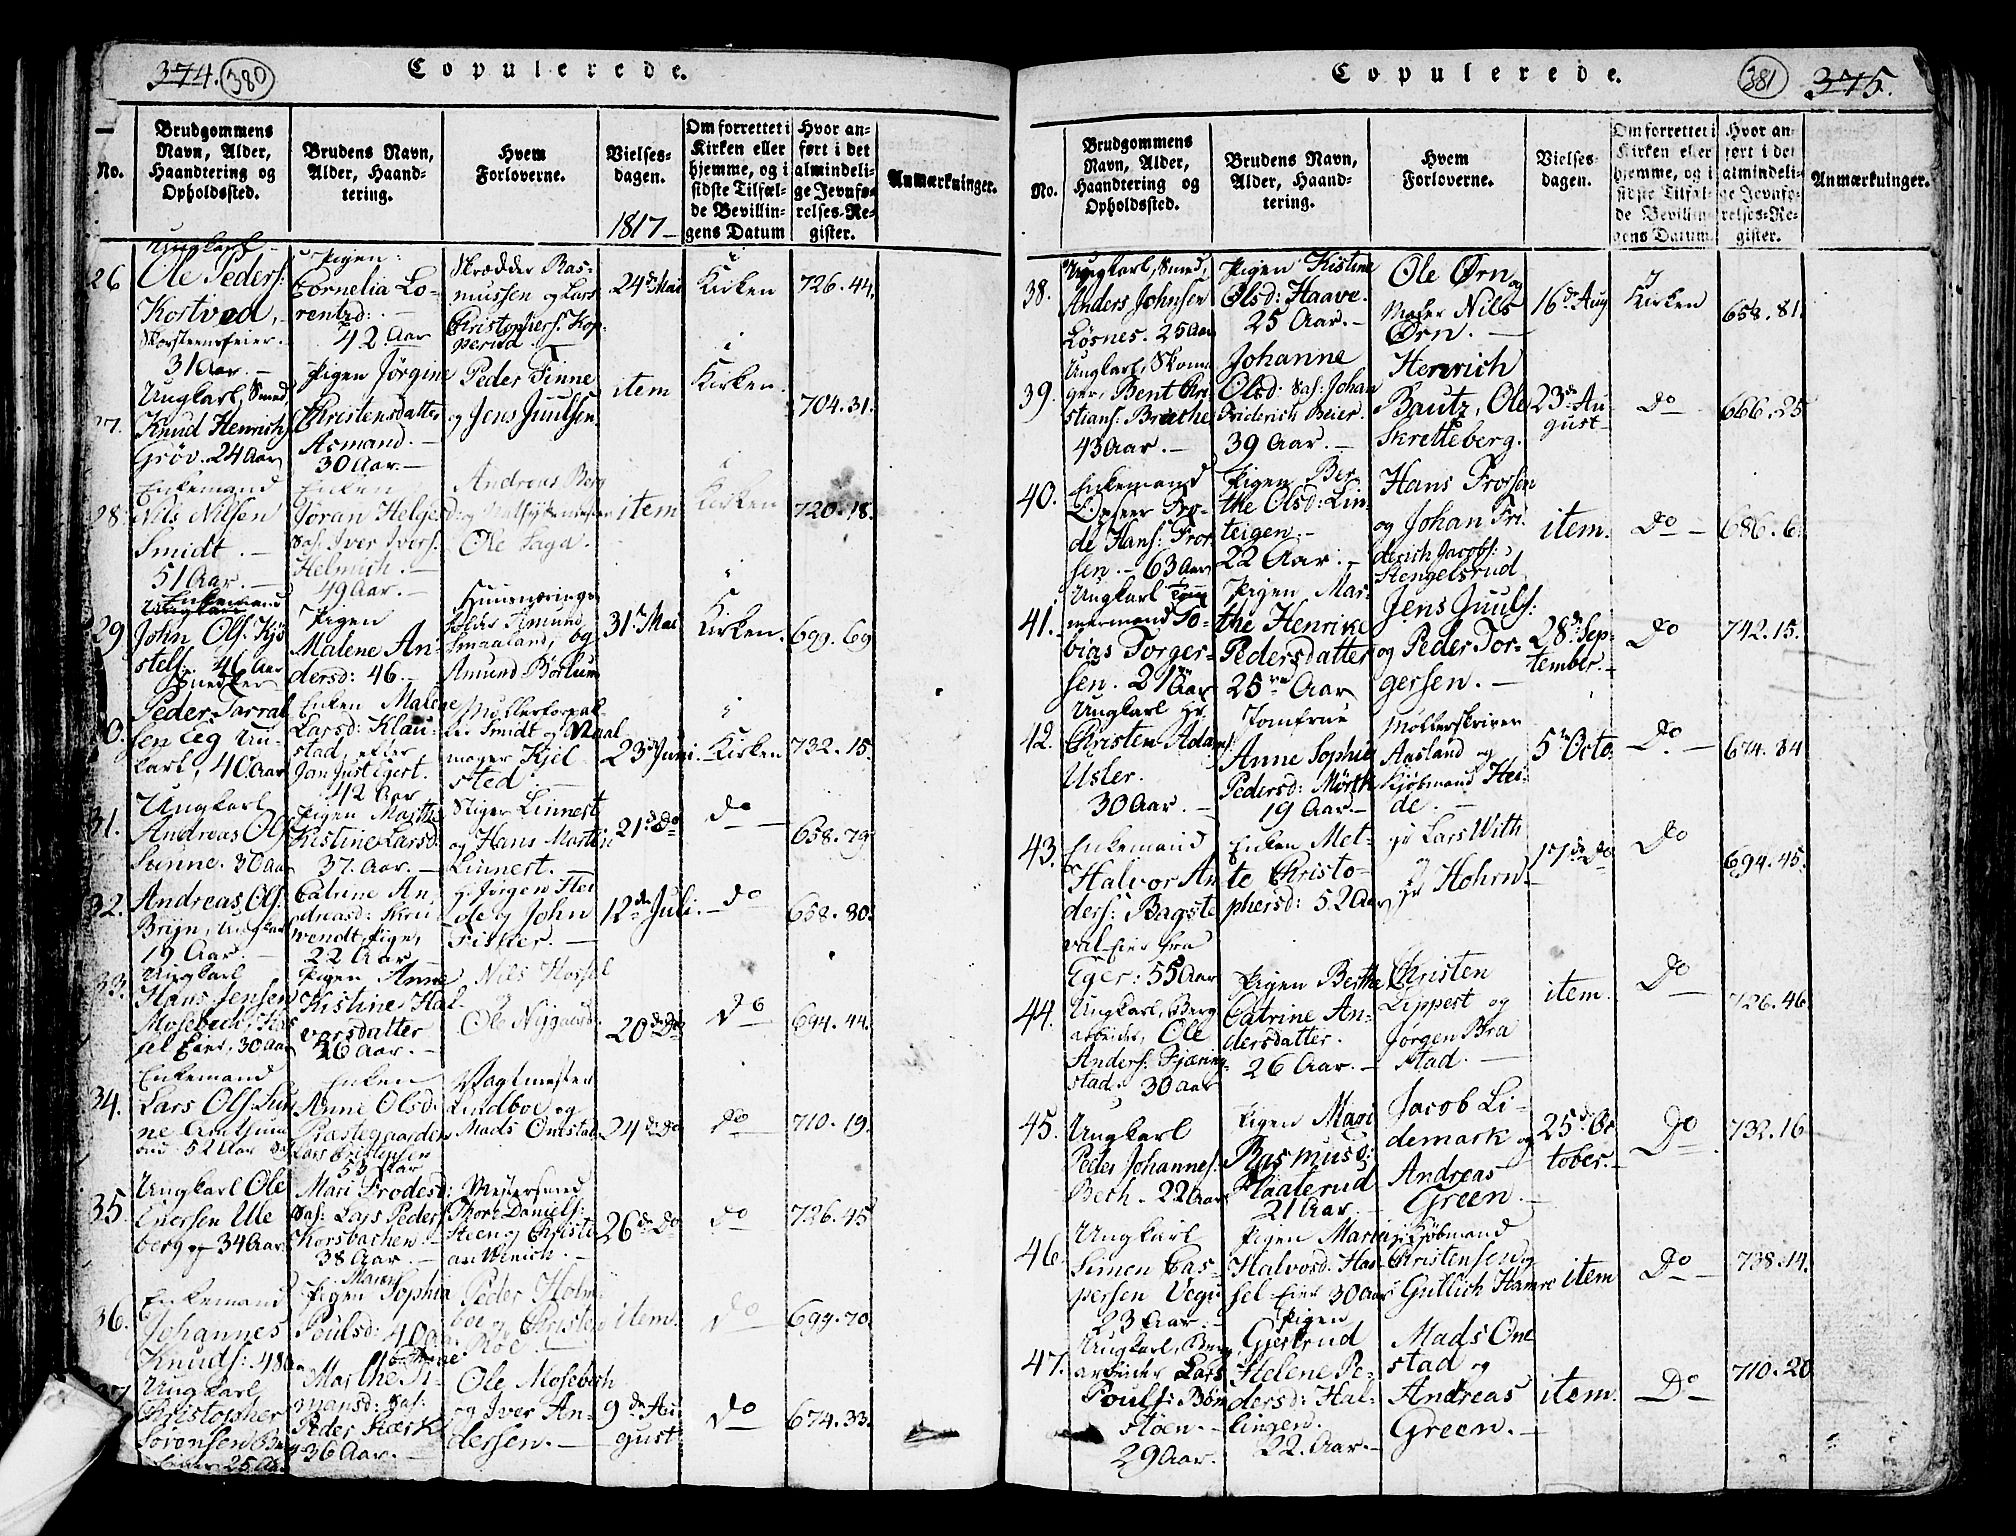 374. 380
Copulerede.
No.
Brudgommens Navn, Alder, Haandtering og Opholdssted.
Brudens Navn, Alder, Haandtering.
Hvem Forloverne.
Vielsesdagen.
1817
Om forrettet i Kirken eller hjemme, og i sidste Tilfælde Bevillingens Datum
Hvor anført i det almindelige Jevnførelses-Register.
Anmærkninger.
26
Ungkarl
Ole Peders:
Kortved,
Skorsteensfeier.
31 Aar.
Pigen:
Cornelia Lo-
rentzd:
42 Aar
Skrædder Ras-
mussen og Lars
Christophers: Kop-
perud
24de Mai
i
Kirken
726.44.
27.
Ungkarl, Smed
Knud Henrichs:
Grøv. 24 Aar
Pigen Jørgine
Christensdatter
Asmand.
30 Aar.
Peder Finne
og Jens Juulsen
item
i
Kirken.
704.31.
28.
Enkemand
Nils Nilsen
Smidt.
51 Aar.
Enken
Jøran Helgesd:
Sal: Iver Ivers:
Helmich.
49 Aar.
Andreas Berg
Ole Saga.
item
i
Kirken
720.18.
29
Enkemand
John Ols: Kjø
stels: 46 Aar
Snedker
Pigen
Malene An-
dersd: 46.
Huusnærings
Smaaland, og
Amund Børlum
31te Mai
i
Kirken.
699.69
30.
Peder Tarral
sen Eeg Un-
karl, 40 Aar
Enken Malene
Larsd: Klau-
stad efter
Jan Just Egert.
42 Aar
Smidt og Naal
mager Kjel
sted
23de Juni.
i
Kirken
732.15.
31.
Ungkarl
Andreas Ols:
Sunne. 30 Aar
Pigen Marthe
Kistine Larsd:
37. Aar.
Stiger Linnert
og Hans Martin
Linnert.
21de do
do
658.79
32.
Andreas Ols:
Bryn, Ungkarl
19 Aar.
Catrine An-
dreasd: Skru
wendt, Pige,
22 Aar
Hr Jørgen Hei
de og John
Fisker.
12de Juli.
do
658.80.
33.
Ungkarl
Hans Jensen
Mosebech, Has
sel Eier. 30 Aar
Pigen Anne
Kistine Hal-
vorsdatter
26 Aar.
Nils Horsel
og
Ole Nygaard.
20de do
do
694.44.
34.
Enkemand
Lars Ols: Sun
ne
52 Aar
Enken
Anne Olsd:
Præstegaarden
Lars Christophersen
53 Aar
Vagtmester
Lindboe og
Mads Onestad
24de do
do
710.19.
35
Ungkarl Ole
Enersen Ule
berg 34 Aar
Mari Frodesd:
Sal: Lars Peders:
Korsbachen
38 Aar.
Mestersvend
Thore Daniels:
Steen og Christi
an Wenich.
26de do
do
726.45
36.
Enkemand
Johannes
Knuds: 48
Maren
Pigen Sophia
Poulsd: 40
Peder Holm
boe og Christen
Roe.
item.
do
699.70.
37
Ungkarl
Christopher
Sørensen
25 Aar
Marthe Si-
monsd: Sal:
Peder Kærk
36 Aar.
Ole Mosebech
og Iver An-
dersen.
9de Au
gust
do
674.33.
Copulerede.
381 375.
No.
Brudgommens Navn, Alder, Haandtering og Opholdssted.
Brudens Navn, Alder, Haandtering.
Hvem Forloverne.
Vielsesdagen.
Om forrettet i Kirken eller hjemme, og i sidste Tilfælde Bevillingens Datum.
Hvor anført i det almindelige Jevnførelses-Register.
Anmærkninger.
38.
Ungkarl, Smed,
Anders Johnsen
Løsnes. 25 Aar
Pigen Kistine
Olsd: Haave.
25 Aar.
Ole Ørn og
Maler Nils
Ørn.
16de Aug
i
Kirken
658.81.
39.
Ungkarl, Skoma
ger, Bent Chri
stians: Brathe
43 Aar.
Johanne
Olsd: Sal: Johan
Friderich Beier.
39 Aar.
Henrich
Bautz, Ole
Skretteberg.
23de Au-
gust
do
666.25
40.
Enkemand
Opseer Fro-
de Hans: Fros
sen. 63 Aar
Pigen Ber-
the Olsd: Lin
teigen.
22 Aar.
Hans Frossen
og Johan Fri
derich Jacobs:
Stengelsrud
item.
do
686.6
41.
Ungkarl Töm
mermand To-
bias Torger-
sen. 27 Aar
Pigen Mar-
the Henrike
Pedersdatter
25 Aar
Jens Juuls:
og Peder Tor-
gersen.
28de Sep-
tember.
do
742.15.
42.
Ungkarl Hr.
Christen Adams:
Usler.
30 Aar.
Jomfrue
Anne Sophia
Pedersd: Mørth
19 Aar.
Mølterskriver
Aasland og
Kjøbmand Hei-
de.
5te Octo.
do
674.34
43.
Enkemand
Halvor An
ders: Bagste
vol Eier fra
Eger: 55 Aar
Enken Met-
te Christo-
phersd: 52 Aar
Hr Lars With
og
Hr Hohrn
17de do
do
694.45.
44.
Ungkarl, Berg
arbeider, Ole
Anders: Fjæring
stad. 30 Aar
Pigen Berthe
Catrine An-
dersdatter.
26 Aar.
Christen
Lippert og
Jørgen Bra
stad.
item.
do
726.46
45.
Ungkarl
Peder Johannes:
Bech. 22 Aar
Pigen Mari
Rasmusd:
Plaaterud
21 Aar.
Jacob Li-
demark og
Andreas
Green.
25de Oc
tober.
do
732.16
46.
Ungkarl
Simen Cas-
persen Vegu
23 Aar.
Pigen Maria
Halvorsd: Has-
sel Eier 30 Aar
Kjøbmand
Christensen og
Gullich Hamre
item
do
738.14.
47.
Ungkarl, Berg
arbeider Lars
Pouls: Bøn
støen.
29 Aar.
Pigen
Gjertrud
Helene Pe-
dersd: Hal-
lingen.
22. Aar.
Mads One
stad og
Andreas
Green.
item.
Do
710.20